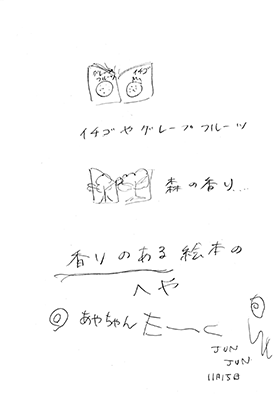 グレープ
フルーツ
イチゴ
イチゴやグレープフルーツ
森の香り...
香りのある絵本の
へや
◎ あやちゃん
JUN
JUN
11月15日